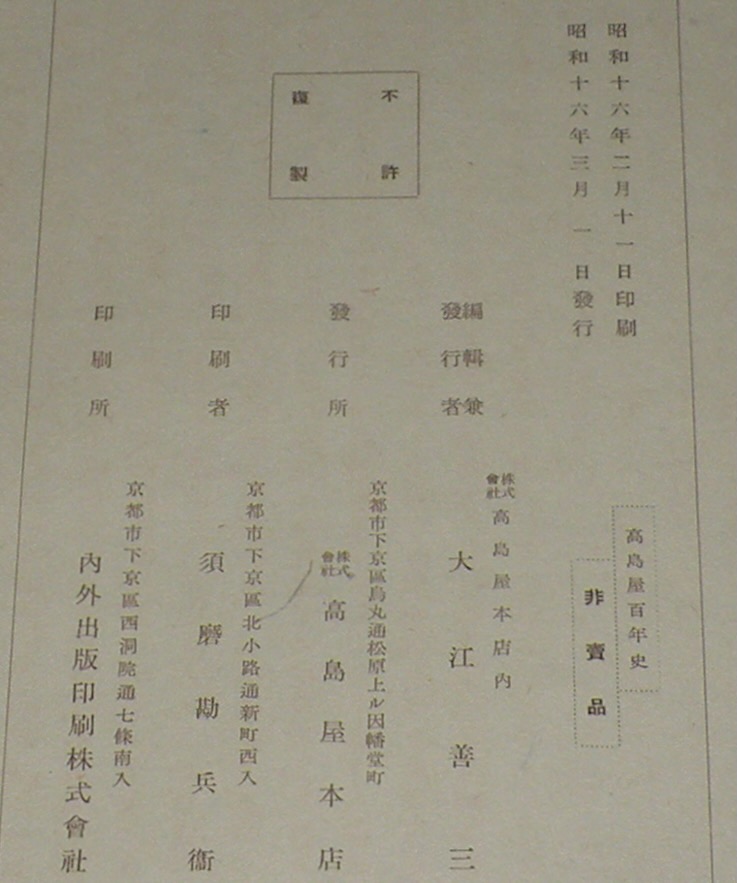 昭和十六年二月十一日印刷
昭和十六年三月 一 日發行
高島屋百年史
非賣品
不許
復製
編輯兼
發行者
株式會社高島屋本店内
大江善三
發行所
京都市下京區烏丸通松原上ル因幡堂町
株式會社高島屋本店
印刷者
京都市下京區北小路通新町西入
須磨勘兵衞
印刷所
京都市下京區西洞院通七條南入
內外出版印刷株式會社